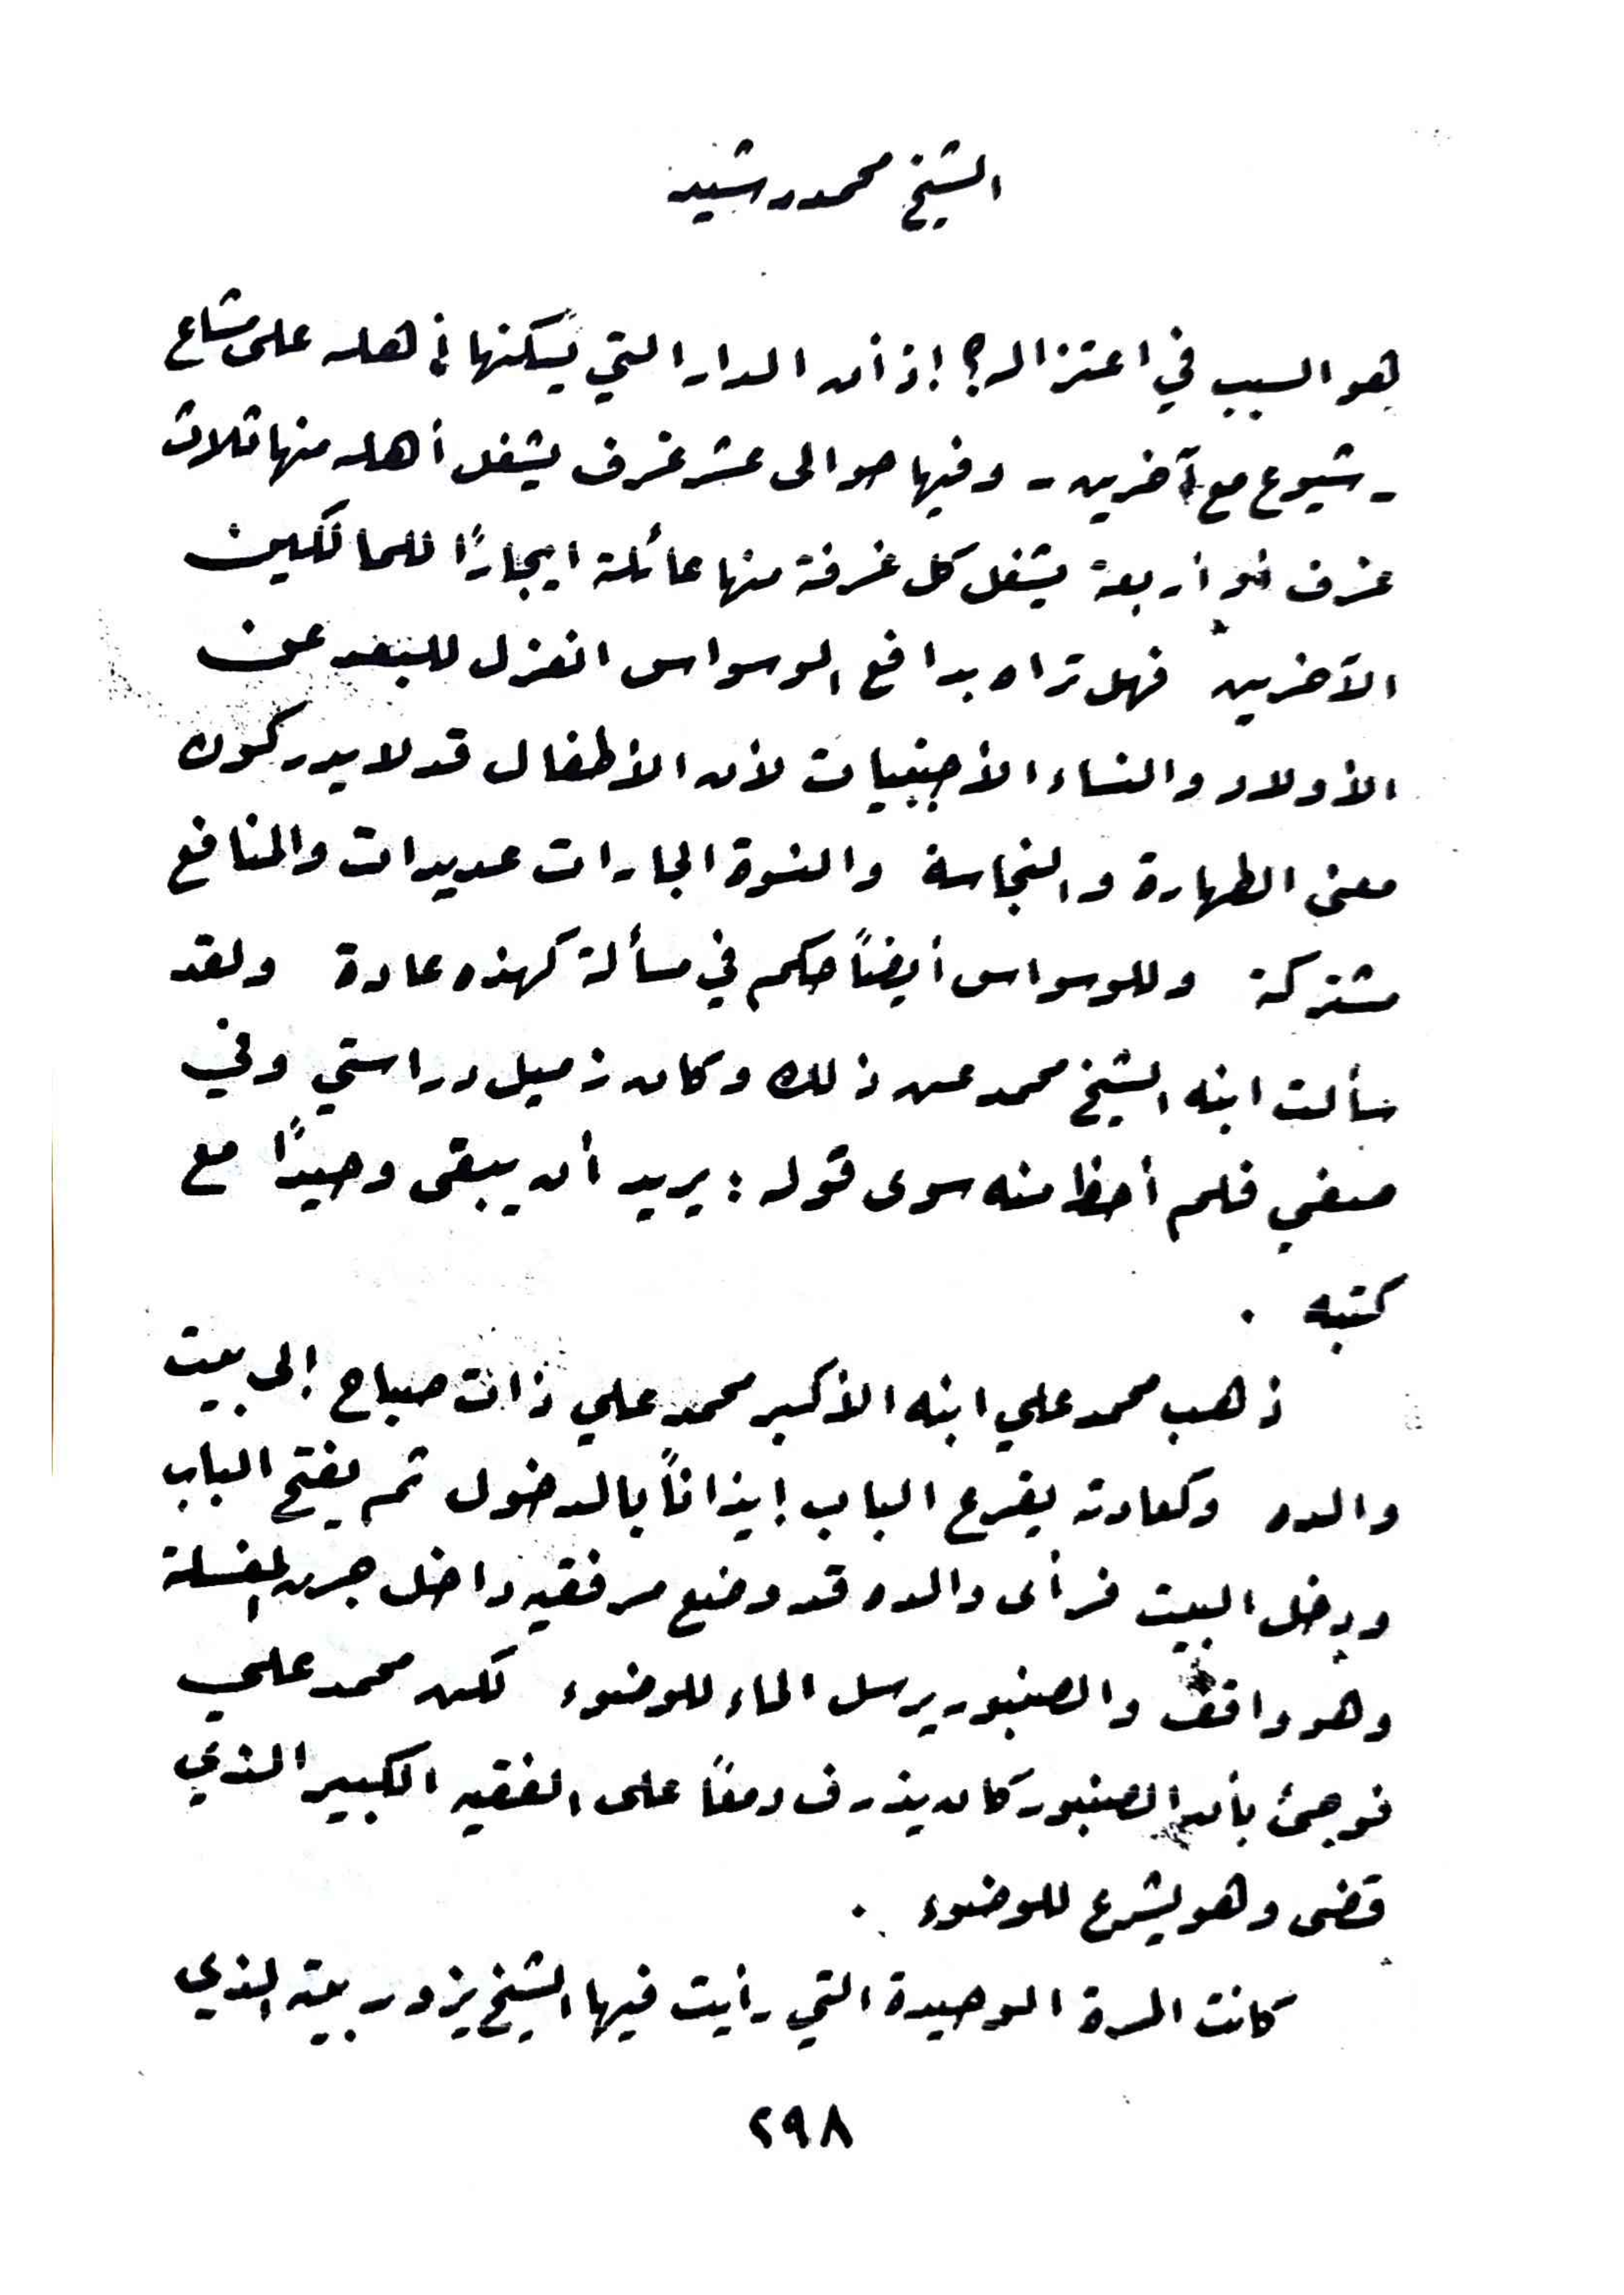 الشيخ محمود رشيد
هو السبب في اعتزاله؟ إذ أن الدار التي يسكنها أهله على مشاع
- شيوع مع آخرين - وفيها حوالى عشر غرف يشغل أهله منها ثلاث
غرف نحو أربعة يشغل كل غرفة منها عائلة ايجارًا للمالكين
الآخرين فهل تراه بدافع الوسواس انعزل للبعد عن
الأولاد والنساء الأجنبيات لأن الأطفال قد لا يدركون
معنى الطهارة والنجاسة والنسوة الجارات عديدات والمنافع
مشتركة وللوسواس أيضاً حكم في مسألة كهذه عادة ولقد
سألت ابنه الشيخ محمد عن ذلك وكان زميل دراستي وفي
صفي فلم أحظ منه سوى قوله : يريد أن يبقى وحيدًا مع
كتبه .
ذهب محمد علي ابنه الأكبر محمد علي ذات صباح إلى بيت
والده وكعادته يقرع الباب إيذاناً بالدخول ثم يفتح الباب
ودخل البيت فرأى والده قد وضع مرفقيه داخل جرن المغسلة
وهو واقف والصنبور يرسل الماء للوضوء لكن محمد علي
فوجئ بأن الصنبور كان يذرف دمعًا على الفقيه الكبير الذي
قضى وهو يشرع للوضوء .
كانت المرة الوحيدة التي رأيت فيها الشيخ يزور بيته الذي
٢٩٨